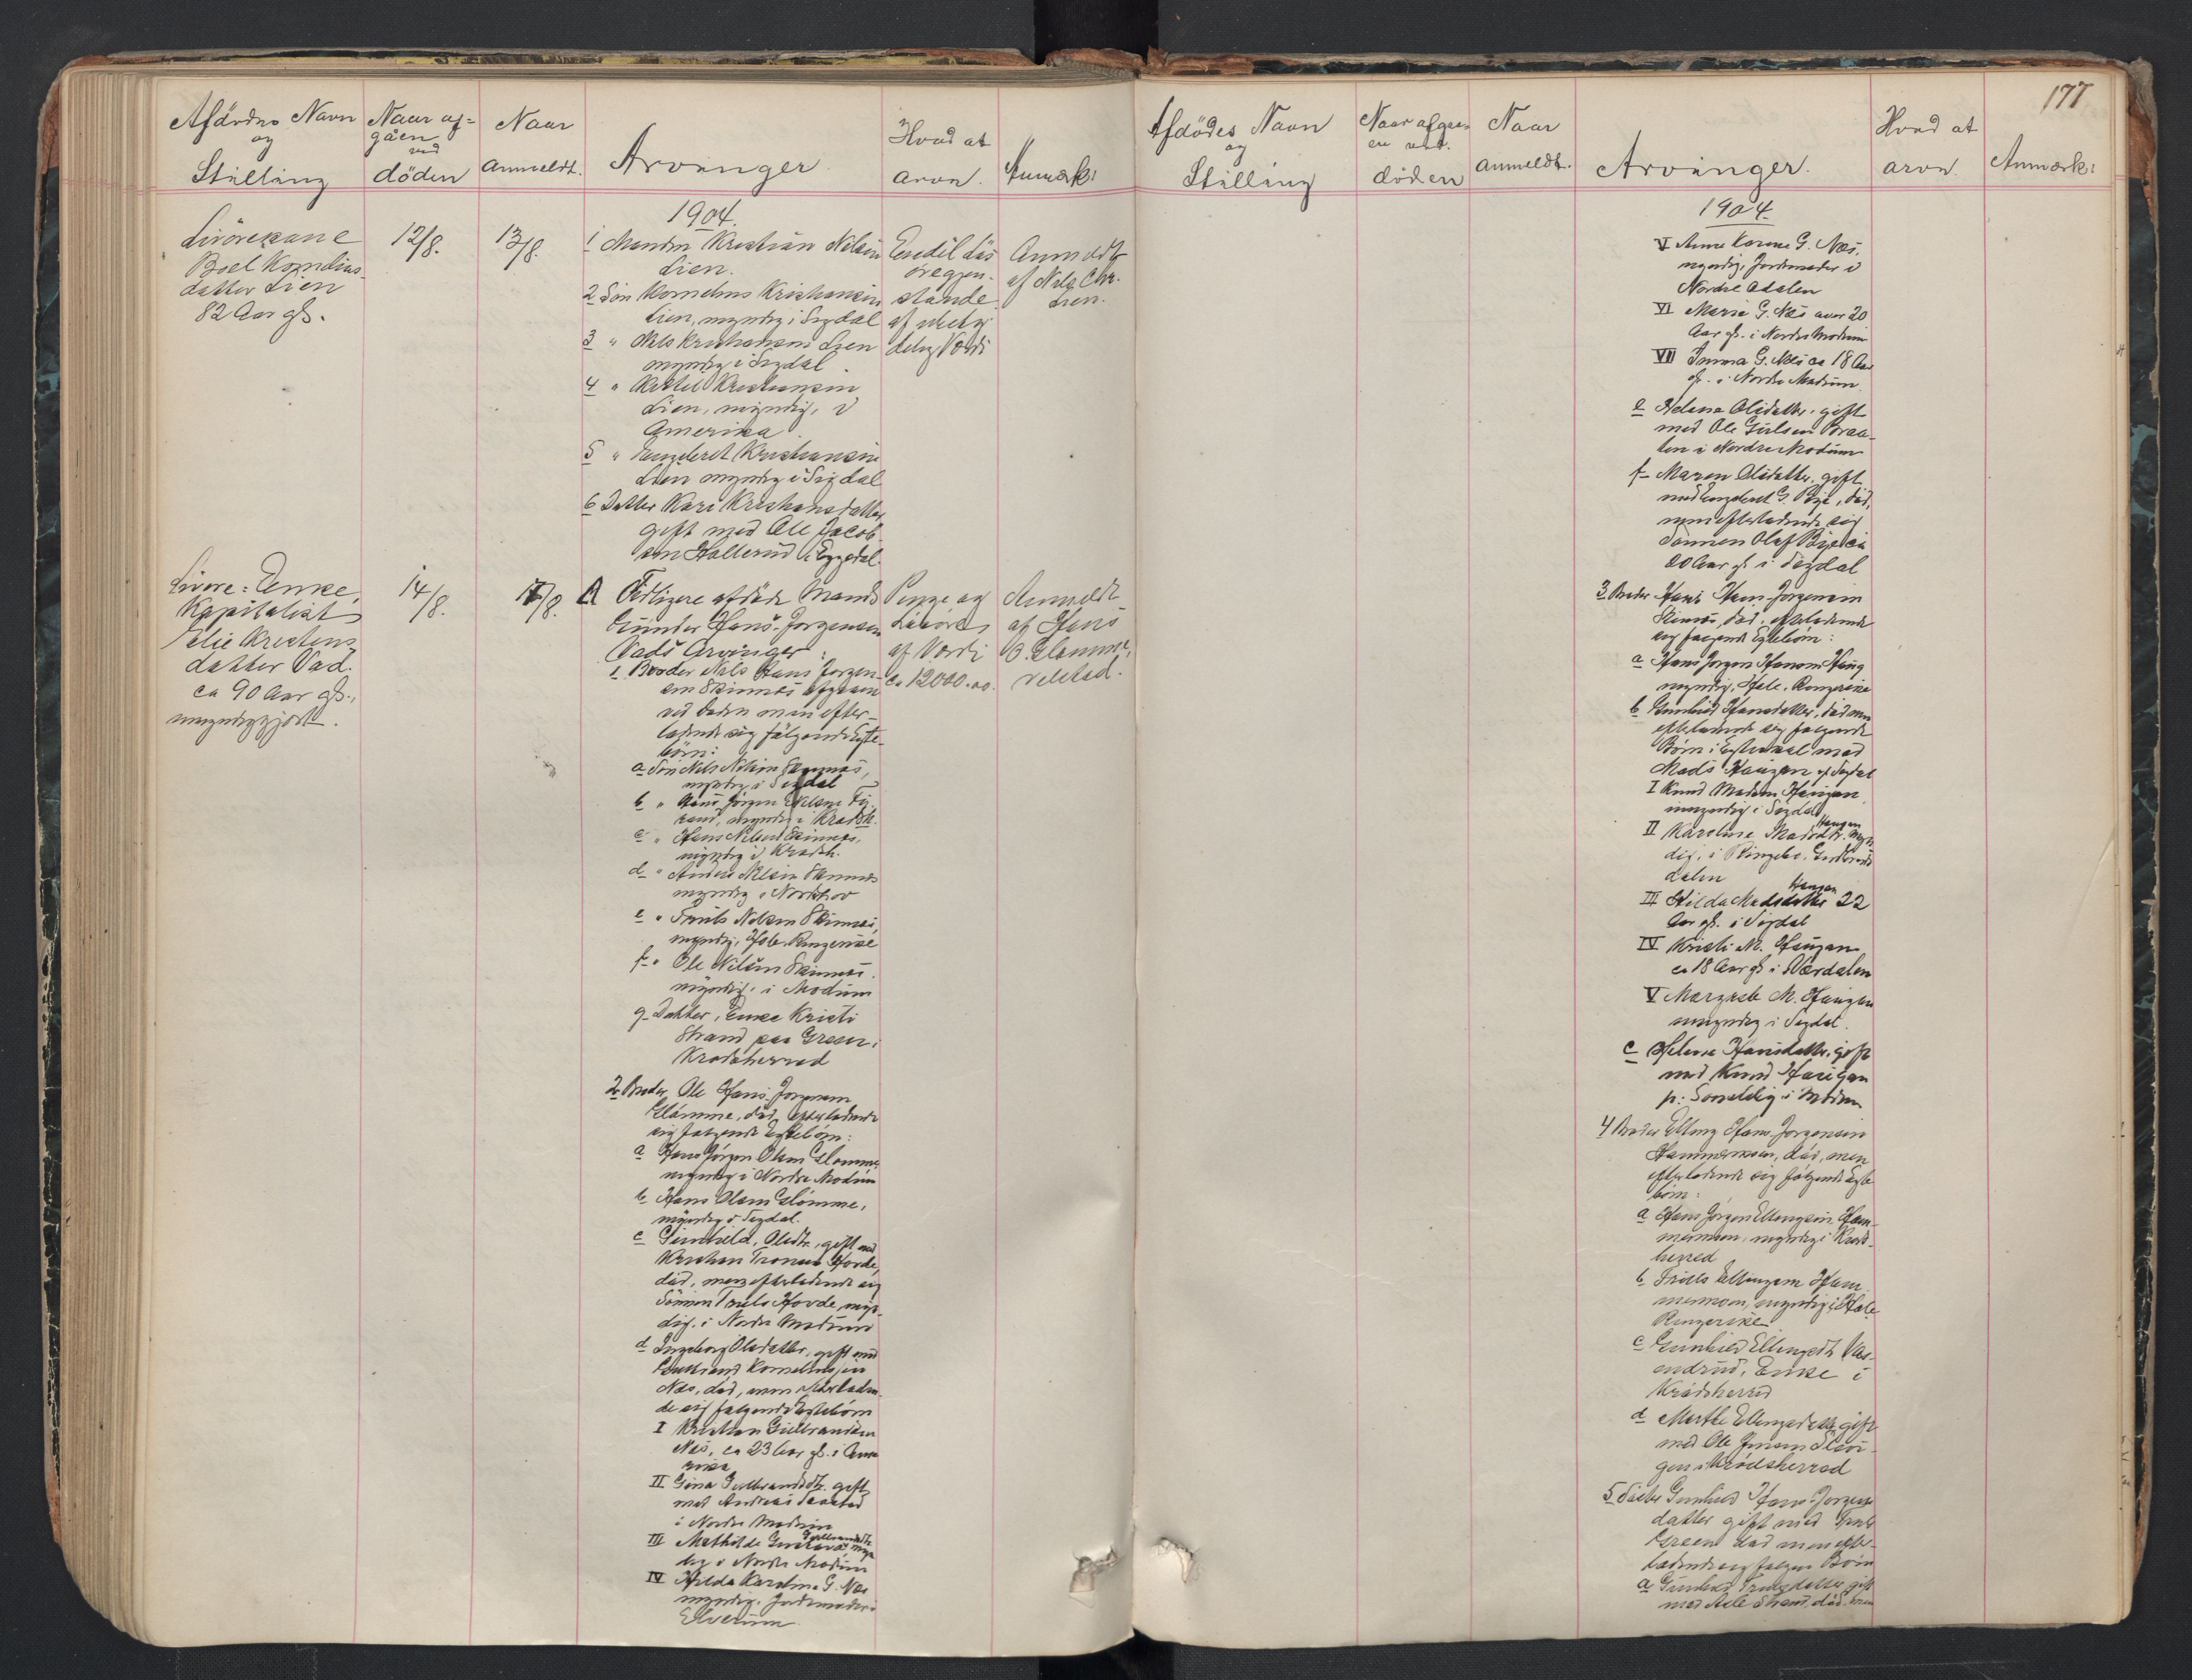 Afdødes Navn
og
Stilling
Naar af-
gåen
ved
döden
Naar
Anmeldt.
Arvinger
Hvad at
arve.
Anmærk:
1904.
Boel Kornelius-
datter Lien
82 Aar gl.
12/8.
13/8.
1 Manden Kristian Nilsen
Lien.
2 Søn Kornelius Kristiansen
Lien, myndig i Sigdal
3 " Nils Kristiansen Lien
myndig i Sigdal
4 " Kittil Kristiansen
Lien, myndig, i
Amerika
5 " Engebret Kristiansen
Lien myndig i Sigdal
6 Datter Kari Kristiansdatter
gift med Ole Jacob-
sen Hallerud i Eggedal.
Endel Løs
öregjen-
stande
af ubety
delig Værdi
Anmeldt
af Nils Chr.
Lien.
Enke,
Kapitalist
Kristens
datter Vad.
ca 90 Aar gl.,
umyndiggjort.
14/8.
17/8.
A Tidligere afdøde Mands
Hans-Jørgensen
Vads Arvinger:
1 Broder Nils Hans Jørgen-
sen Skinnes afgaaen
ved døden men efter-
ladende sig følgende Egte-
börn:
a Søn Nils Nilsen Skinnes,
myndig i Sigdal
b " Hans Jörgen Nilsen
myndig i Krødsh.
c " Hans Nilsen Skinnes,
myndig i Krødsh.
d " Anders Nilsen Skinnes
myndig i Norderhov
e " Truls Nilsen Skinnes,
myndig, Hole, Ringerike
f " Ole Nilsen Skinnes.
myndig, i Modum
g Datter, Enke Kristi
Strand paa Green i
Krødsherred
2 Broder Ole Hans-Jörgensen
Glomme, död, efterladende
sig følgende Egtebörn:
a Hans Jörgen Olsen Glomme
myndig i Nordre Modum
b Hans Olsen Glomme,
myndig i Sigdal.
c Gunhild, Olsdtr., gift med
Kristian Tronsen Hovde,
död, men efterladende sig
Sönnen Truls Hovde, myn-
dig, i Nordre Modum
d Ingeborg Olsdatter, gift med
Gulbrand Korneliussen
Næs, død, men efterladen-
de sig følgende Egtebørn
I Kristian Gulbrandsen
Næs, ca 23 Aar gl. i Ame
rika
II Gina Gulbrandsdtr. gift
med Andreas
i Nordre Modum
III Mathilde Gulbrandsdtr. myn
dig i Nordre Modum
IV Hilda Karoline G. Næs
myndig, Jordemoder i
Elverum.
Penge og
Løsøre
af Værdi
ca 12000.00.
Anmeldt
af Hans
O. Glomme,
Afdödes Navn
og
Stilling
Naar afgaa-
en ved.
döden
Naar
anmeldt.
Arvinger.
Hvad at
arve.
Anmærk:
177
1904.
V Anne Karine G. Næs,
myndig, Jordemoder i
Nordre Aadalen
VI Marie G. Næs over 20
Aar gl. i Nordre Modum
VII Emma G. Næs ca 18 Aar
gl. i Nordre Modum
e Helene Olsdatter, gift
med Ole Gulsen Braa-
ten i Nordre Modum
f Maren Olsdatter, gift
med Engebret G. Bye, död,
men efterladende sig
Sönnen Olaf Bye ca
20 Aar gl. i Sigdal
3 Broder Hans Hans-Jørgensen
Skinnes, død, efterladende
sig følgende Egtebørn:
a Hans Jörgen Hansen Haug
myndig, Hole, Ringerike
b Gunhild Hansdatter, død men
efterladende sig følgende
Børn i Egteskab med
Mads Haugan af Sigdal
I Knud Madsen Haugan
myndig i Sigdal
II Karoline Madsdtr. Haugan myn
dig, i Ringebu, Gudbrands
dalen
III Hilda Madsdatter Haugan 22
Aar gl. i Sigdal
IV Kristi M. Haugan
ca 18 Aar gl. i Værdalen
V Margrete M. Haugan
umyndig i Sigdal.
c Helene Hansdatter, gift
med Knud Haugan
p: Snarum i Modum
4 Broder Elling Hans-Jørgensen
Hammersmoen, død, men
efterladende sig følgende Egte
börn:
a Hans Jørgen Ellingsen Ham-
mersmoen, myndig i Krøds-
herred
b Truls Ellingsen Ham-
mersmoen, myndig i Hole
Ringerike
c Gunhild Ellingsdtr.
Enke i
Krødsherred
d Marthe Ellingsdatter gift
med Ole Jensen
gen i Krødsherred
5 Søster Gunhild Hans-Jørgens-
datter gift med Truls
Green død men efter-
ladende sig følgen Börn
a Gunhild Trulsdatter gift
med Strand, død, men